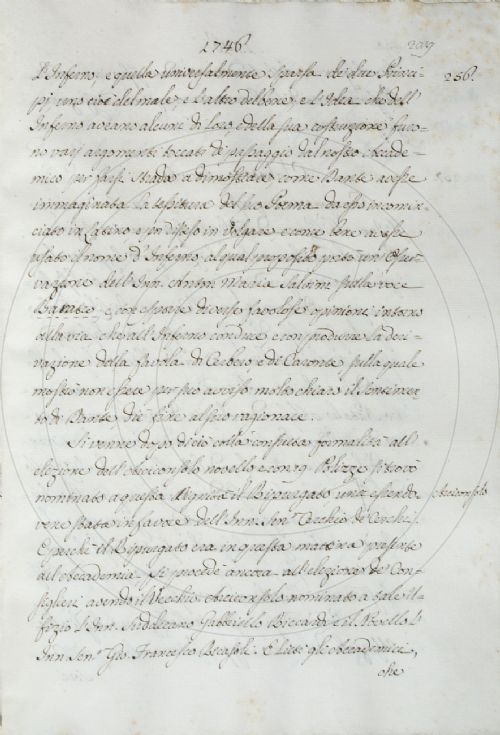 1746.
209
256.
L'Inferno, e quella universalmente sparsa de due Princi-
pj uno cioè del male, e l'altro del bene, e l'Idea che dell'
Inferno aveano alcuni di Loro, e della sua costruzione furo-
no varj argomenti toccati di passaggio dal nostro Accade-
mico per farsi strada a dimostrare come Dante avesse
immaginata la tessitura del suo Poema da esso incomin-
ciato in Latino e poi disteso in Volgare e come bene avesse
il nome d'Inferno al qual proposito portò un'Osser-
vazione dell'Inn. Anton Maria Salvini sulla voce
e con esporre diverse favolose opinioni intorno
alla via che all'Inferno conduce e con produrre la deri-
vazione della favola di Cerbero, e di Caronte sulla quale
mostrò non essere per suo avviso molto chiaro il Sentimen-
to di Dante diè fine al suo ragionare.
Si venne dopo di ciò colla consueta formalità all'
elezione dell'Arciconsolo novello e con 19 Polizze si trovò
nominato a questa Dignità il Ripurgato
Arciconsolo
vene stata in favore dell'Inn. Sen.e Cerchio de Cerchi.
E perchè il Ripurgato era in questa mattina presente
all'Accademia si procedè ancora all'elezione de Con-
siglieri avendo il Vecchio Arciconsolo nominato a tale Uf-
fizio l'Inn. Suddecano Gabbriello Riccardi e il Novello l'
Inn. Sen.e Gio. Francesco Ricasoli. E lieti gli Accademici,
che